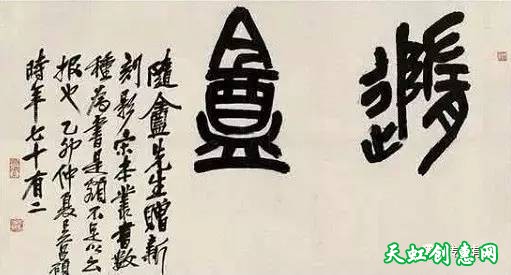 隨盦
隨盦先生贈新
刻影宋本叢書數
種為書是額不足以云
報也乙卯仲夏吳昌碩
時年七十有二
天虹创意网